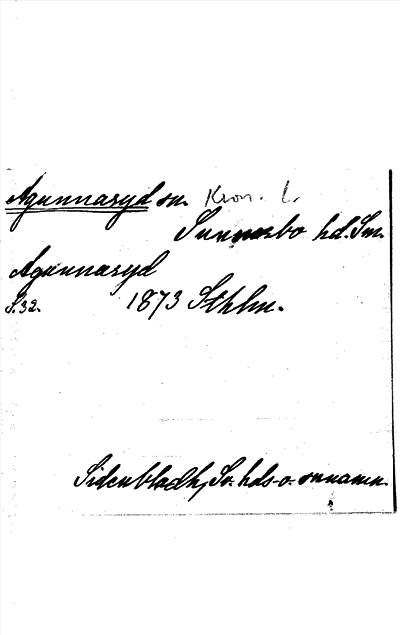 Agunnaryd sn. Kron. l.
Sunnerbo hd. Sm.
Agunnaryd
S. 32. 1873 Sthlm.
Sidenbladh, Sv. hds- o. snnamn.